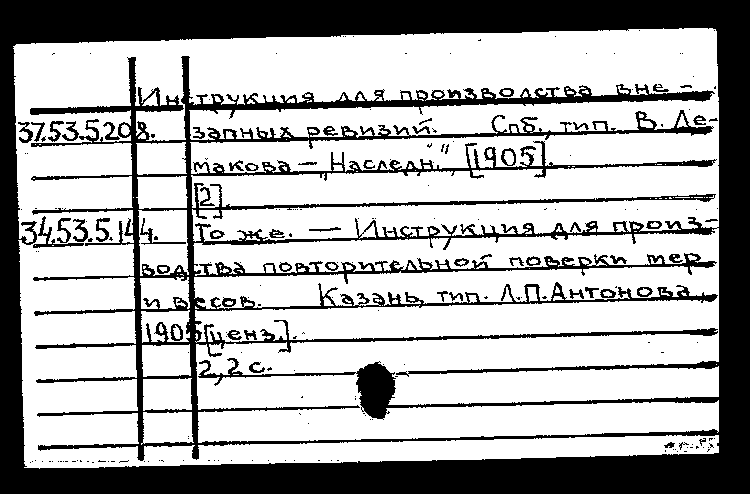 Инструкция для производства вне-
37.53.5.208. запных ревизий. Спб., тип. В. Де-
макова – „Наследн.", [1905].
[2].
34.53.5.144. То же. — Инструкция для произ-
водства повторительной поверки мер
и весов. Казань, тип. Л.П.Антонова,
1905 [ценз.].
2,2 с.